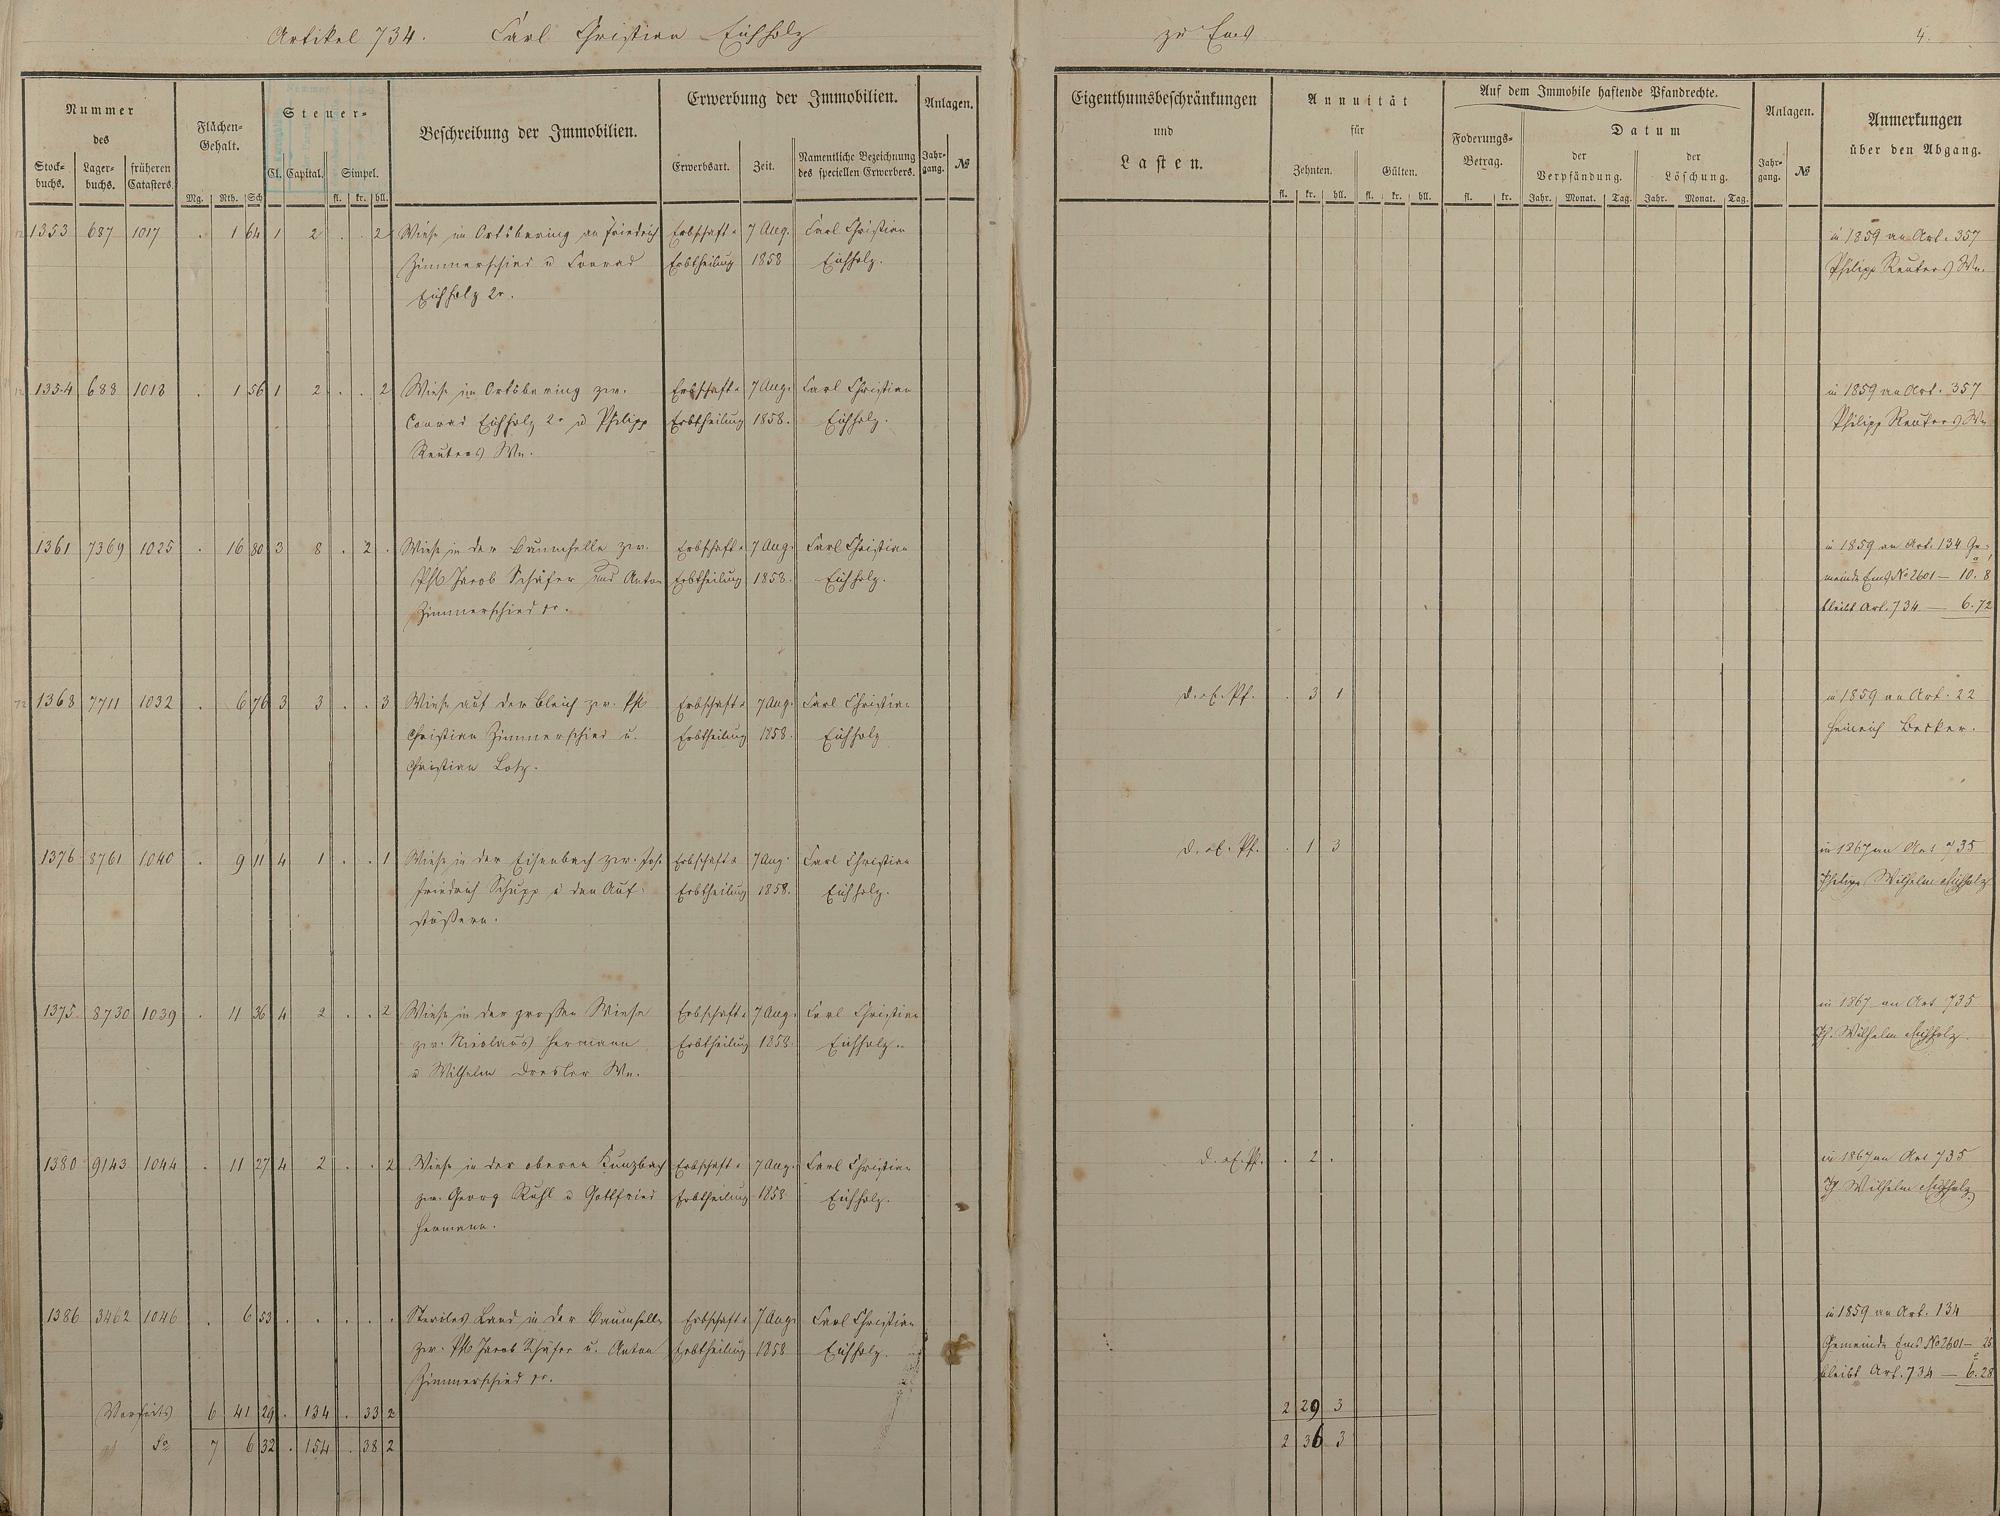 Artikel 734. Carl Christian Eichholz
zu Ems
4.
Nummer
des
Stock-
buchs.
Lager-
buchs.
früheren
Catasters.
Flächen-
Gehalt.
Mg. Rth. Sch
Steuer-
Cl. Capital. Simpel.
fl. kr. hll.
Beschreibung der Immobilien.
Erwerbung der Immobilien.
Erwerbsart. Zeit.
Namentliche Bezeichnung
des speciellen Erwerbers.
Anlagen.
Jahr-
gang.
№
Eigenthumsbeschränkungen
und
Lasten.
Annuität
für
Zehnten. Gülten.
fl. kr. hll. fl. kr. hll.
Auf dem Immobile haftende Pfandrechte.
Foderungs-
Betrag.
fl. kr.
Datum
der
Verpfändung.
der
Löschung.
Jahr. Monat. Tag. Jahr. Monat. Tag.
Anlagen.
Jahr-
gang.
№
Anmerkungen
über den Abgang.
1353 687 1017 . 1 64 1 2 . . 2 Wiese im Ortsbering an Friedrich Erbschaft u. 7 Aug. Carl Christian in 1859 an Art. 357
Zimmerschied u Conrad Erbtheilung 1858 Eichholz. Philipp Reuters Wn.
Eichholz 2r.
1354 688 1018 . 1 56 1 2 . . 2 Wiese im Ortsbering zw. Erbschaft u. 7 Aug. Carl Christian in 1859 an Art. 357
Conrad Eichholz 2r u Philipp Erbtheilung 1858. Eichholz. Philipp Reuters Wn
Reuters Wn.
1361 7369 1025 . 16 80 3 8 . 2 . Wiese in der Baumhelle zw. Erbschaft u. 7 Aug. Carl Christian in 1859 an Art. 134 Ge-
Phl Jacob Schäfer und Anton Erbtheilung 1858. Eichholz. meinde Ems No 2601 — 10. 8
Zimmerschied sr. bleibt Art. 734 — 6.72
1368 7711 1032 . 6 76 3 3 . . 3 Wiese auf der Bleich zw. Phl Erbschaft u. 7 Aug. Carl Christian d. E. Pf. . 3 1 in 1859 an Art. 22
Christian Zimmerschied u. Erbtheilung 1858. Eichholz Heinrich Becker.
Christian Lotz.
1376 8761 1040 . 9 11 4 1 . . 1 Wiese in der Eisenbach zw. Joh. Erbschaft u 7 Aug. Carl Christian d. E. Pf. . 1 3 in 1867 an Art 735
Friedrich Schupp u den Auf- Erbtheilung 1858. Eichholz. Philipp Wilhelm Eichholz
stößern.
1375 8730 1039 . 11 36 4 2 . . 2 Wiese in der großen Wiese Erbschaft u. 7 Aug. Carl Christian in 1867 an Art 735
zw. Nicolaus Hermann Erbtheilung 1858. Eichholz. Ph. Wilhelm Eichholz.
u Wilhelm Dresler Wn.
1380 9143 1044 . 11 27 4 2 . . 2 Wiese in der oberen Kunzbach Erbschaft u. 7 Aug. Carl Christian d. E. Pf. . 2 . in 1867 an Art 735
zw. Georg Ruhl u Gottfried Erbtheilung 1858 Eichholz. Ph Wilhelm Eichholz
Hermann.
1386 3462 1046 . 6 53 . . . . . Steriles Land in der Baumhelle Erbschaft u. 7 Aug. Carl Christian in 1859 an Art. 134
zw. Phl Jacob Schäfer u. Anton Erbtheilung 1858 Eichholz. Gemeinde Ems No 2601 — 25
Zimmerschied sr. bleibt Art. 734 — 6.28
Vorseits 6 41 29 . 134 . 33 2 2 29 3
Sa 7 6 32 . 154 . 38 2 2 36 3